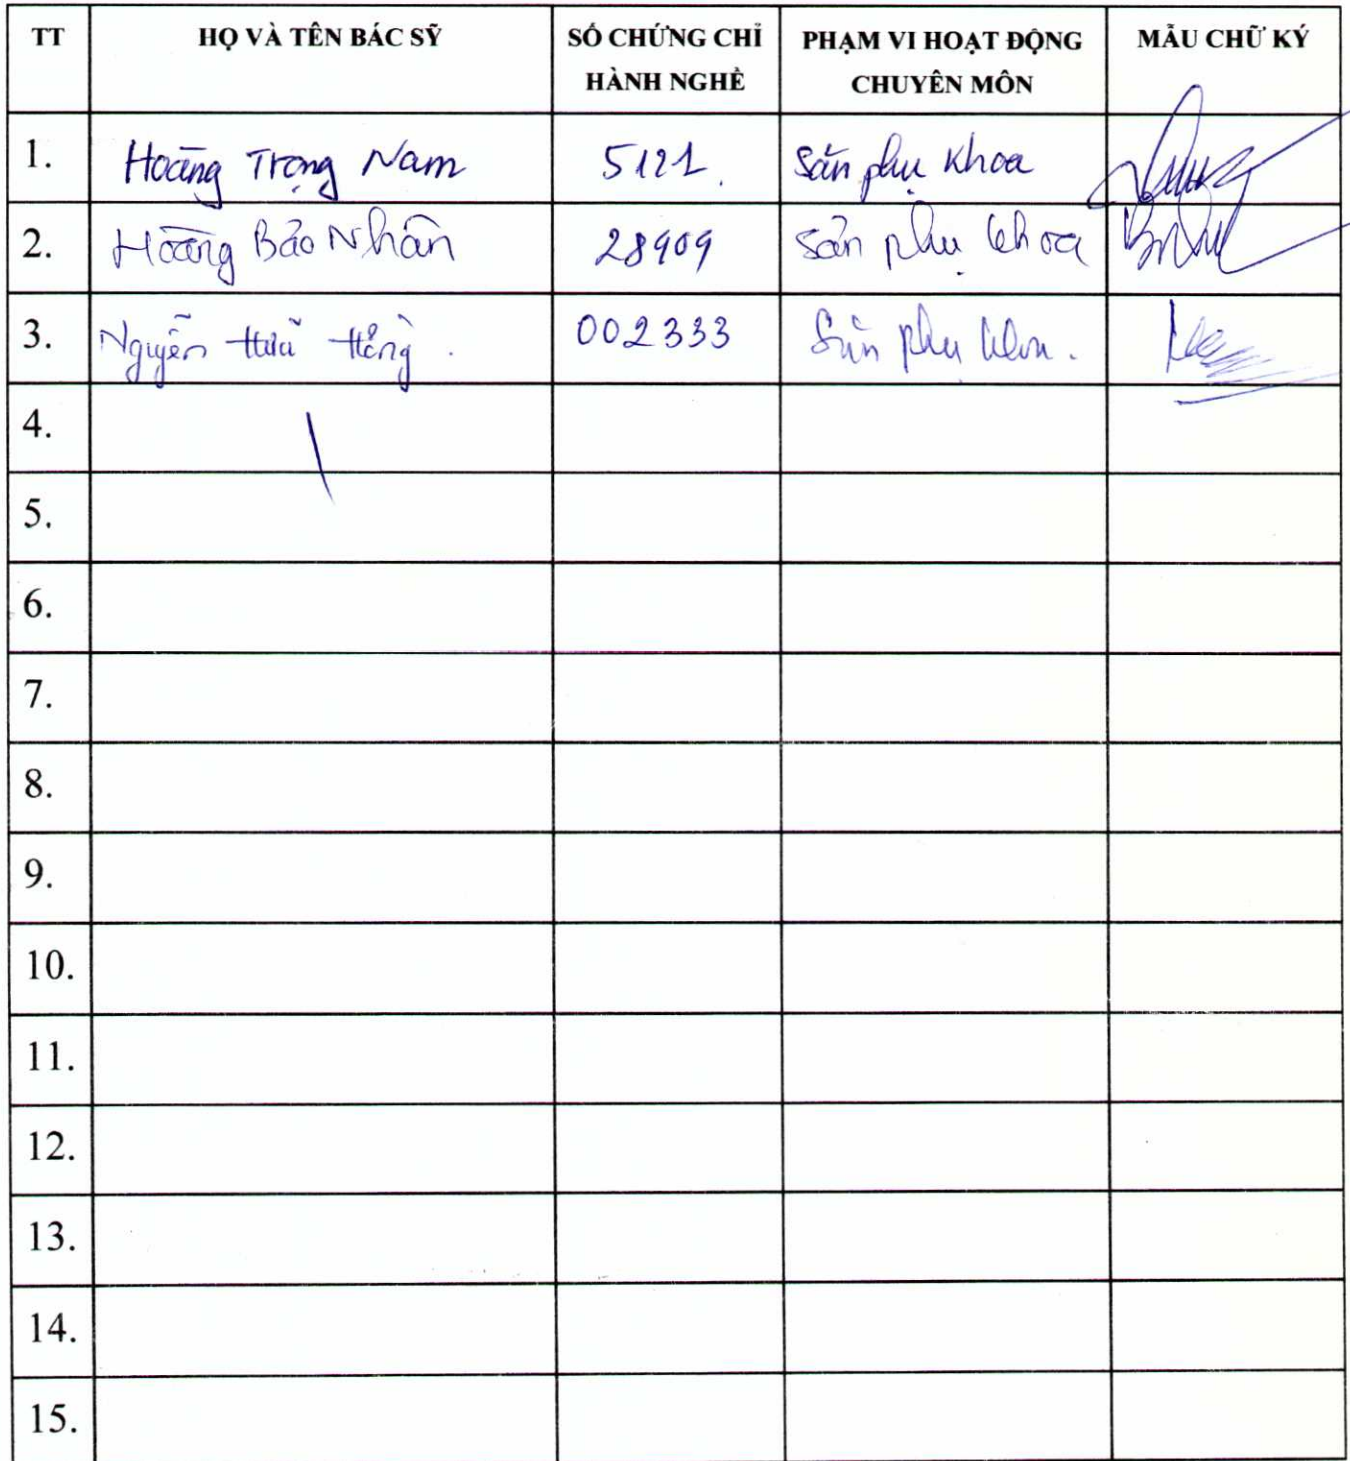 TT HỌ VÀ TÊN BÁC SỸ SỐ CHỨNG CHỈ HÀNH NGHỀ PHẠM VI HOẠT ĐỘNG CHUYÊN MÔN MẪU CHỮ KÝ
1. Hoàng Trọng Nam 5121. Sản phụ khoa
2. Hoàng Bảo Nhân 28909 Sản phụ khoa
3. Nguyễn Hữu Hồng. 002333 Sản phụ khoa.
4.
5.
6.
7.
8.
9.
10.
11.
12.
13.
14.
15.